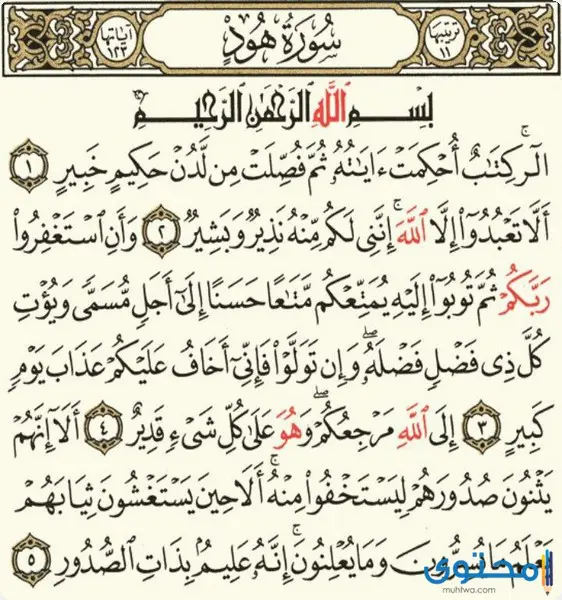 ترتيبها ١١
سُورَةُ هُودٍ
آياتها ١٢٣
بِسْمِ ٱللَّهِ ٱلرَّحْمَٰنِ ٱلرَّحِيمِ
الٓرۚ كِتَٰبٌ أُحْكِمَتْ ءَايَٰتُهُۥ ثُمَّ فُصِّلَتْ مِن لَّدُنْ حَكِيمٍ خَبِيرٍ ١
أَلَّا تَعْبُدُوٓا۟ إِلَّا ٱللَّهَۚ إِنَّنِى لَكُم مِّنْهُ نَذِيرٌ وَبَشِيرٌ ٢ وَأَنِ ٱسْتَغْفِرُوا۟
رَبَّكُمْ ثُمَّ تُوبُوٓا۟ إِلَيْهِ يُمَتِّعْكُم مَّتَٰعًا حَسَنًا إِلَىٰٓ أَجَلٍ مُّسَمًّى وَيُؤْتِ
كُلَّ ذِى فَضْلٍ فَضْلَهُۥۖ وَإِن تَوَلَّوْا۟ فَإِنِّىٓ أَخَافُ عَلَيْكُمْ عَذَابَ يَوْمٍ
كَبِيرٍ ٣ إِلَى ٱللَّهِ مَرْجِعُكُمْۖ وَهُوَ عَلَىٰ كُلِّ شَىْءٍ قَدِيرٌ ٤ أَلَآ إِنَّهُمْ
يَثْنُونَ صُدُورَهُمْ لِيَسْتَخْفُوا۟ مِنْهُۚ أَلَا حِينَ يَسْتَغْشُونَ ثِيَابَهُمْ
يَعْلَمُ مَا يُسِرُّونَ وَمَا يُعْلِنُونَۚ إِنَّهُۥ عَلِيمٌۢ بِذَاتِ ٱلصُّدُورِ ٥
محتوى
muhtwa.com